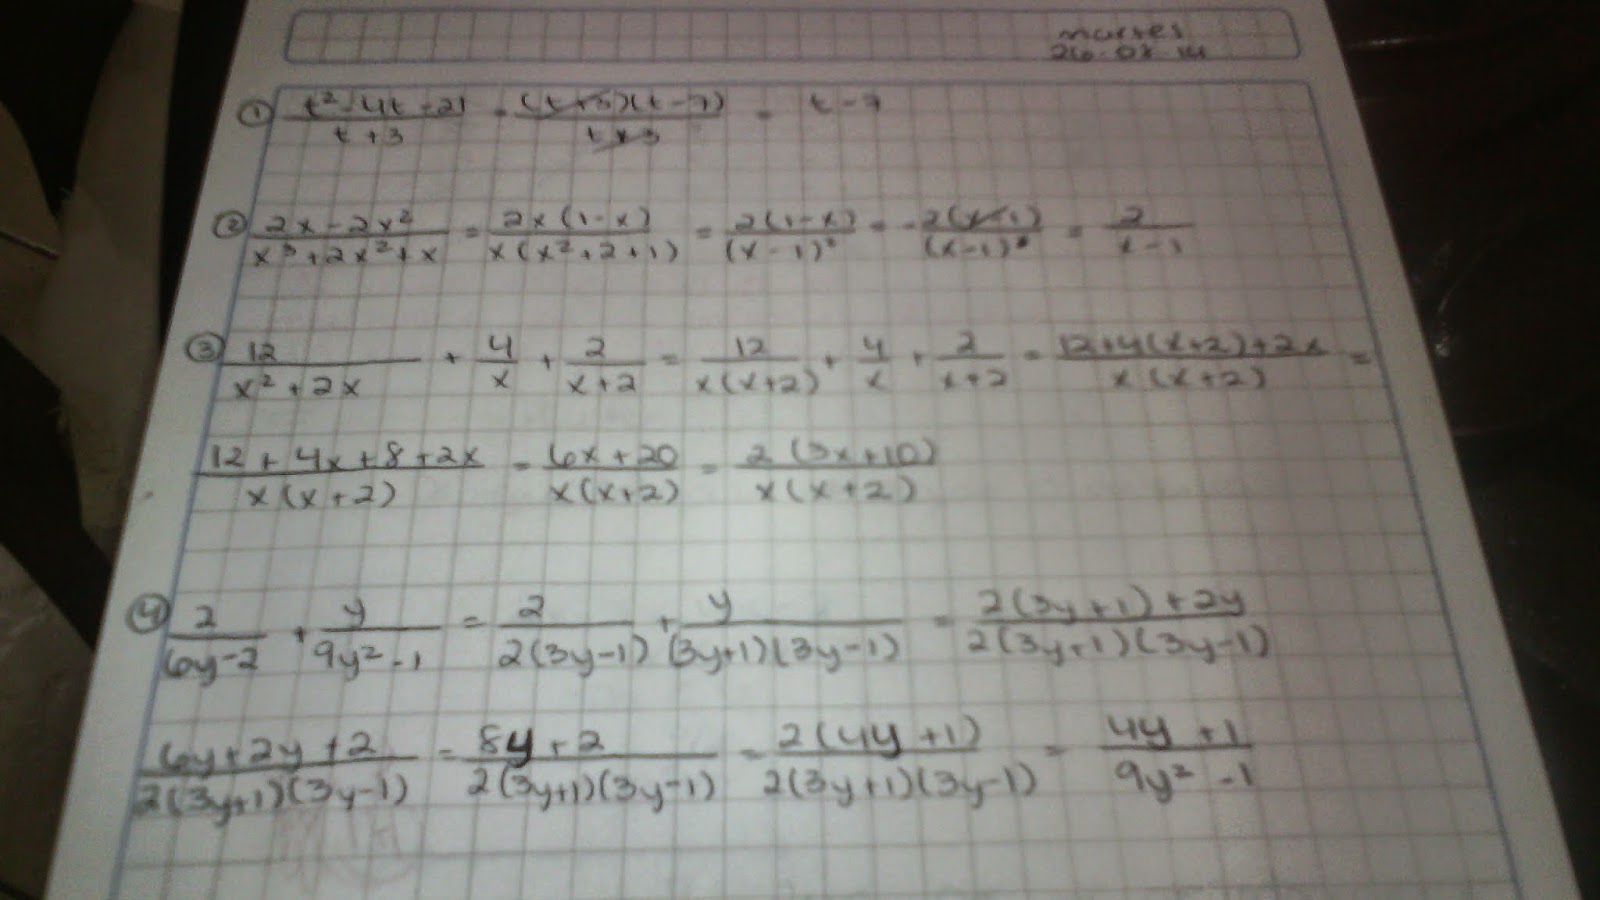 martes
26.08.14
① t² - 4t - 21 / t + 3 = (t+3)(t-7) / t+3 = t - 7
② 2x - 2x² / x³ + 2x² + x = 2x(1-x) / x(x²+2+1) = 2(1-x) / (x-1)² = -2(x-1) / (x-1)² = 2 / x-1
③ 12 / x² + 2x + 4 / x + 2 / x+2 = 12 / x(x+2) + 4 / x + 2 / x+2 = 12+4(x+2)+2x / x(x+2) =
12 + 4x + 8 + 2x / x(x+2) = 6x + 20 / x(x+2) = 2(3x+10) / x(x+2)
④ 2 / 6y-2 + y / 9y²-1 = 2 / 2(3y-1) + y / (3y+1)(3y-1) = 2(3y+1)+2y / 2(3y+1)(3y-1)
6y+2y+2 / 2(3y+1)(3y-1) = 8y+2 / 2(3y+1)(3y-1) = 2(4y+1) / 2(3y+1)(3y-1) = 4y+1 / 9y²-1